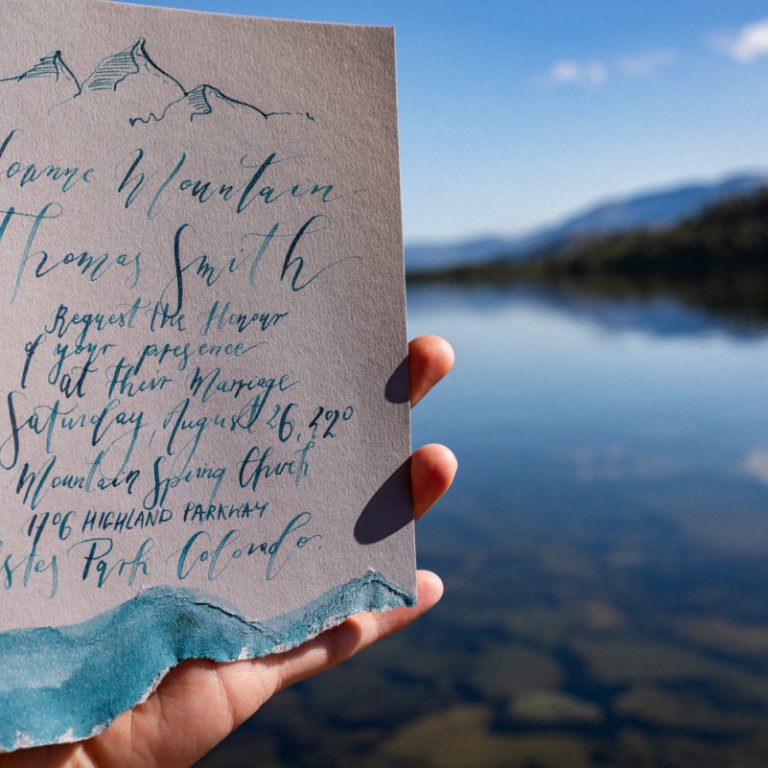 Joanne Mountain
Thomas Smith
Request the Honour
of your presence
at their Marriage
Saturday, August 26, 2020
Mountain Spring Church
1706 HIGHLAND PARKWAY
Estes Park Colorado.